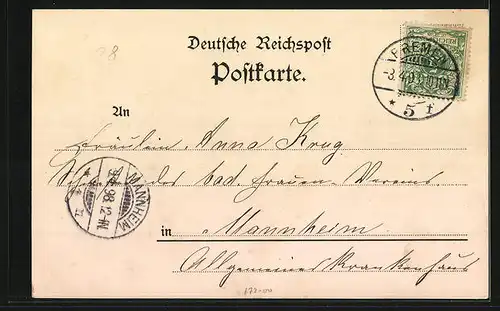 98
Deutsche Reichspost
Postkarte.
BREMEN
5 f
An
Fräulein Anna Krug
des bad. Frauen-Vereins
MANNHEIM
98.12-1N.
in Mannheim
Allgemeines Krankenhaus